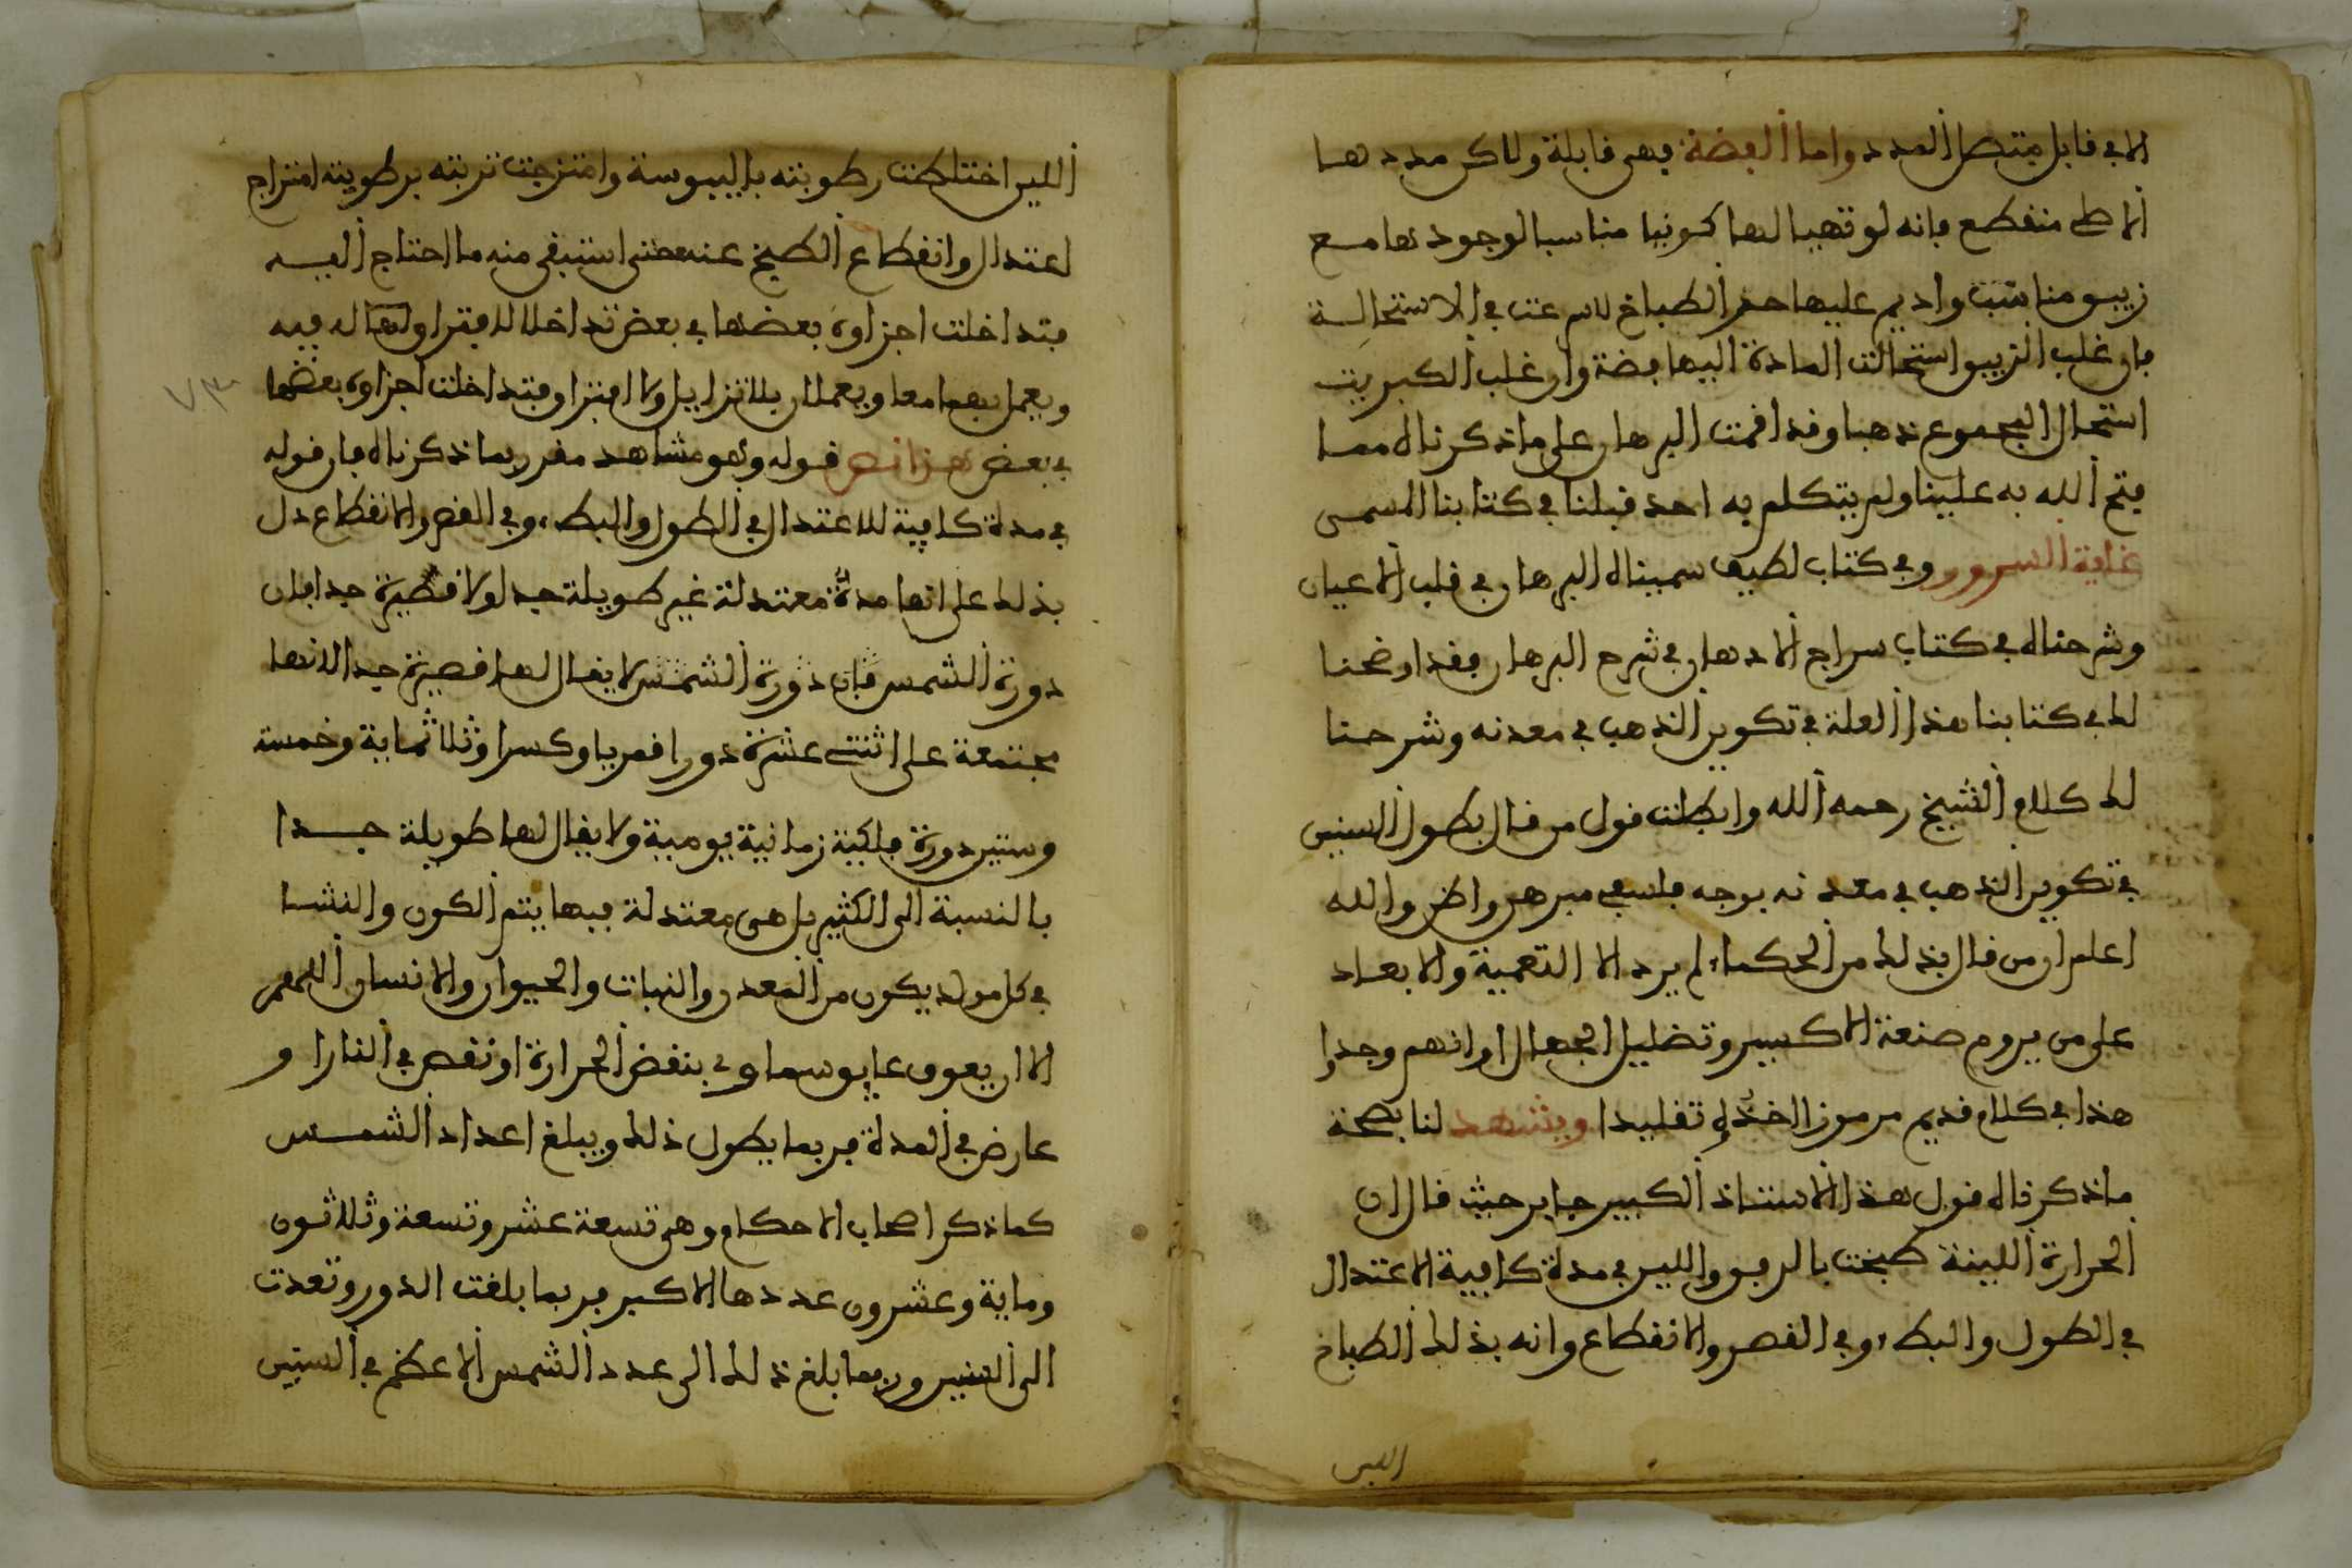 الا في قابل متصل المدد واما الفضة فهي قابلة ولاكن مددها
الاصلي منقطع فانه لو تهيا لها كونيا مناسبا لوجودها مع
زيبو مناسب واديم عليها حمر الطباخ لاسرعت في الاستحالة
فان غلب الزيبو استحالت المادة اليها فضة وان غلب الكبريت
استحال المجموع ذهبا وقد اقمت البرهان على ما ذكرناه مما
فتح الله به علينا ولم يتكلم به احد قبلنا في كتابنا المسمى
غاية السرور وفي كتاب لطيف سميناه البرهان في قلب الاعيان
وشرحناه في كتاب سراج الادهان في شرح البرهان فقد اوضحنا
لك في كتابنا هذا العلة في تكوين الذهب في معدنه وشرحنا
لك كلام الشيخ رحمه الله وابطلت قول من قال بطول السنين
في تكوين الذهب في معدنه بوجه فلسفي مبرهن واضح والله
اعلم ان من قال بذلك من الحكماء لم يرد الا التعمية والابعاد
على من يروم صنعة الاكسير وتضليل الجهال او انهم وجدوا
هذا في كلام قديم مرموز اخذوه تقليدا ويشهد لنا بصحة
ما ذكرناه قول هذا الاستاذ الكبير جابر حيث قال ان
الحرارة اللينة طبخت بالرفق واللين في مدة كافية الاعتدال
في الطول والبطء وفي القصر والانقطاع وانه بذلك الطباخ
اللين
اللين اختلطت رطوبته باليبوسة وامتزجت تربته برطوبته امتزاج
اعتدال وانقطاع الطبخ عنه حتى استبقى منه ما احتاج اليه
فتداخلت اجزاوه بعضها في بعض تداخلا لا يفتراو لهما له فيه
ويعمل بهما معا ويعملان بلا تزايل ولا افتراق فتداخلت اجزاوه بعضها
في بعض هذا نص قوله وهو مشاهد مقرر بما ذكرناه فان قوله
في مدة كافية للاعتدال في الطول والبطء وفي القصر والانقطاع دل
بذلك على انها مدة معتدلة غير طويلة جدا ولا قصيرة جدا فان
دورة الشمس فان دورة الشمس لا يقال لها قصيرة جدا لانها
مجتمعة على اثنتي عشرة دورا قمريا وكسرا وثلاثماية وخمسة
وستين دورة فلكية زمانية يومية ولا يقال لها طويلة جدا
بالنسبة الى الكثير بل هي معتدلة فيها يتم الكون والنشا
في كل مولد يكون من المعدن والنبات والحيوان والانسان اللهم
الا ان يعوق عايق سماوي بنقض الحرارة او نقص في النار او
عارض في المدة فربما يطول ذلك ويبلغ اعداد الشمس
كما ذكر اصحاب الاحكام وهي تسعة عشر وتسعة وثلاثون
وماية وعشرون عددها الاكبر فربما بلغت الدور وتعدت
الى السنين وربما بلغ ذلك الى عدد الشمس الاعظم في السنين